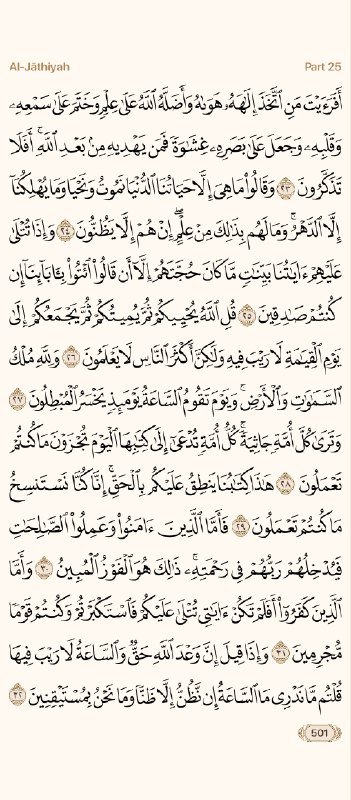 Al-Jāthiyah Part 25
أَفَرَءَيْتَ مَنِ ٱتَّخَذَ إِلَٰهَهُۥ هَوَىٰهُ وَأَضَلَّهُ ٱللَّهُ عَلَىٰ عِلْمٍ وَخَتَمَ عَلَىٰ سَمْعِهِۦ
وَقَلْبِهِۦ وَجَعَلَ عَلَىٰ بَصَرِهِۦ غِشَٰوَةً فَمَن يَهْدِيهِ مِنۢ بَعْدِ ٱللَّهِ ۚ أَفَلَا
تَذَكَّرُونَ ٢٣ وَقَالُوا۟ مَا هِىَ إِلَّا حَيَاتُنَا ٱلدُّنْيَا نَمُوتُ وَنَحْيَا وَمَا يُهْلِكُنَآ
إِلَّا ٱلدَّهْرُ ۚ وَمَا لَهُم بِذَٰلِكَ مِنْ عِلْمٍ ۖ إِنْ هُمْ إِلَّا يَظُنُّونَ ٢٤ وَإِذَا تُتْلَىٰ
عَلَيْهِمْ ءَايَٰتُنَا بَيِّنَٰتٍ مَّا كَانَ حُجَّتَهُمْ إِلَّآ أَن قَالُوا۟ ٱئْتُوا۟ بِـَٔابَآئِنَآ إِن
كُنتُمْ صَٰدِقِينَ ٢٥ قُلِ ٱللَّهُ يُحْيِيكُمْ ثُمَّ يُمِيتُكُمْ ثُمَّ يَجْمَعُكُمْ إِلَىٰ
يَوْمِ ٱلْقِيَٰمَةِ لَا رَيْبَ فِيهِ وَلَٰكِنَّ أَكْثَرَ ٱلنَّاسِ لَا يَعْلَمُونَ ٢٦ وَلِلَّهِ مُلْكُ
ٱلسَّمَٰوَٰتِ وَٱلْأَرْضِ ۚ وَيَوْمَ تَقُومُ ٱلسَّاعَةُ يَوْمَئِذٍ يَخْسَرُ ٱلْمُبْطِلُونَ ٢٧
وَتَرَىٰ كُلَّ أُمَّةٍ جَاثِيَةً ۚ كُلُّ أُمَّةٍ تُدْعَىٰٓ إِلَىٰ كِتَٰبِهَا ٱلْيَوْمَ تُجْزَوْنَ مَا كُنتُمْ
تَعْمَلُونَ ٢٨ هَٰذَا كِتَٰبُنَا يَنطِقُ عَلَيْكُم بِٱلْحَقِّ ۚ إِنَّا كُنَّا نَسْتَنسِخُ
مَا كُنتُمْ تَعْمَلُونَ ٢٩ فَأَمَّا ٱلَّذِينَ ءَامَنُوا۟ وَعَمِلُوا۟ ٱلصَّٰلِحَٰتِ
فَيُدْخِلُهُمْ رَبُّهُمْ فِى رَحْمَتِهِۦ ۚ ذَٰلِكَ هُوَ ٱلْفَوْزُ ٱلْمُبِينُ ٣٠ وَأَمَّا
ٱلَّذِينَ كَفَرُوٓا۟ أَفَلَمْ تَكُنْ ءَايَٰتِى تُتْلَىٰ عَلَيْكُمْ فَٱسْتَكْبَرْتُمْ وَكُنتُمْ قَوْمًا
مُّجْرِمِينَ ٣١ وَإِذَا قِيلَ إِنَّ وَعْدَ ٱللَّهِ حَقٌّ وَٱلسَّاعَةُ لَا رَيْبَ فِيهَا
قُلْتُم مَّا نَدْرِى مَا ٱلسَّاعَةُ إِن نَّظُنُّ إِلَّا ظَنًّا وَمَا نَحْنُ بِمُسْتَيْقِنِينَ ٣٢
501